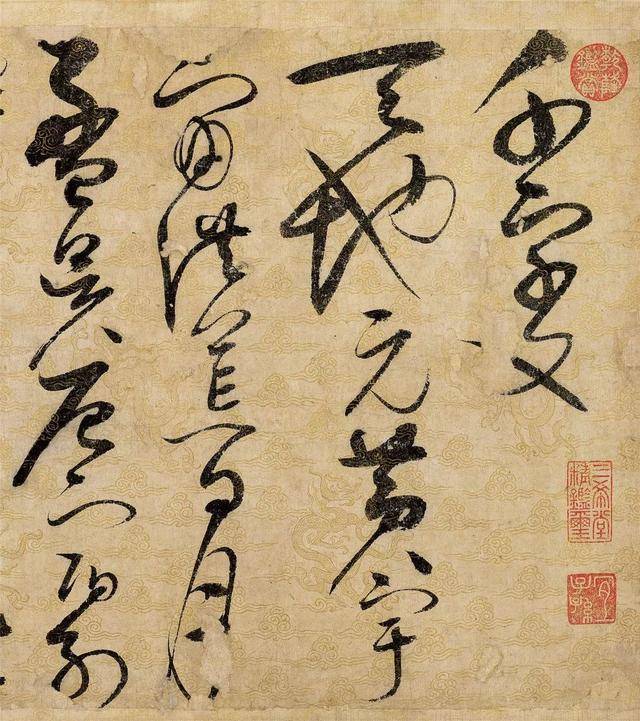 乾隆鑑賞
千字文
三希堂精鑑璽
宜子孫
天地元黃宇
宙洪荒日月
盈昃辰宿列